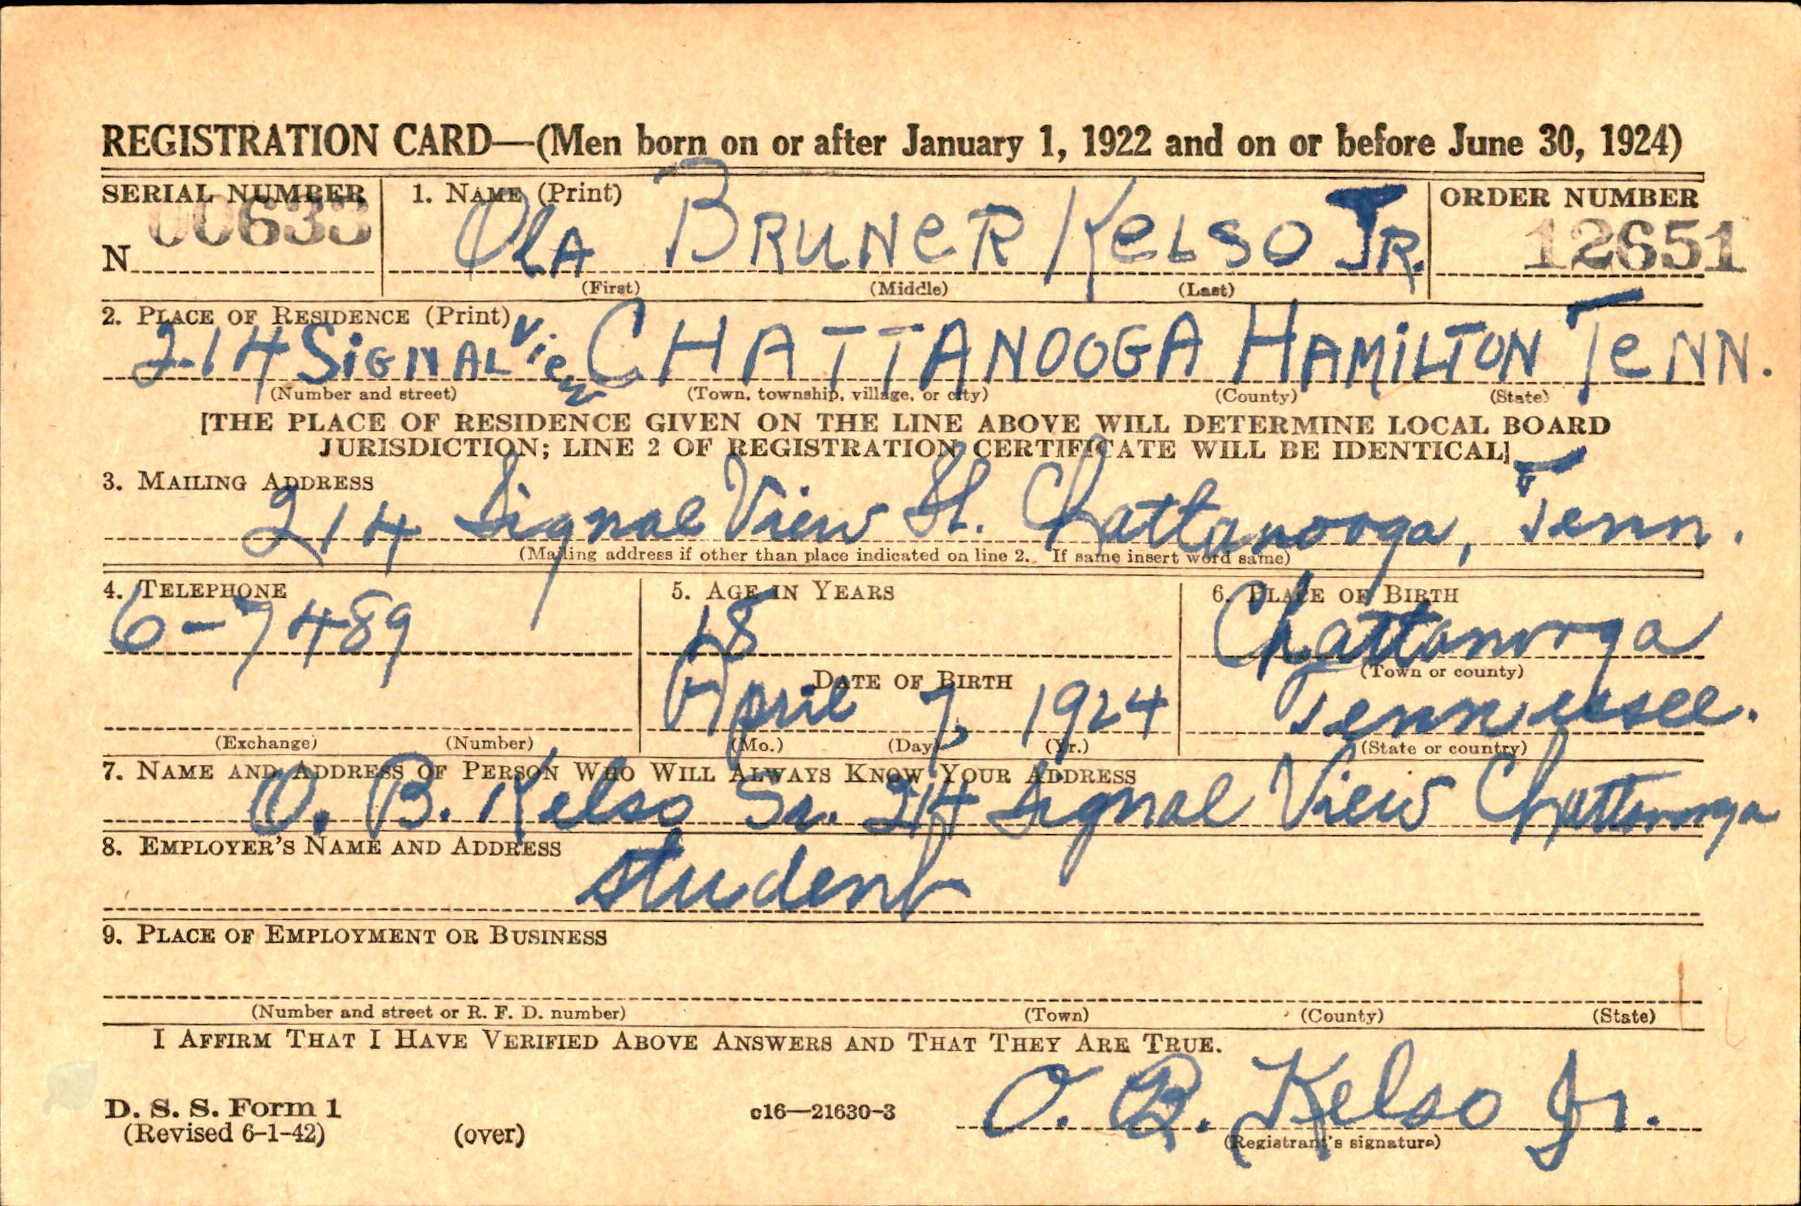 REGISTRATION CARD—(Men born on or after January 1, 1922 and on or before June 30, 1924)
SERIAL NUMBER 1. NAME (Print) ORDER NUMBER
N 00633 OLA BRUNER KELSO JR. 12651
(First) (Middle) (Last)
2. PLACE OF RESIDENCE (Print)
214 SIGNAL View CHATTANOOGA HAMILTON TENN.
(Number and street) (Town, township, village, or city) (County) (State)
[THE PLACE OF RESIDENCE GIVEN ON THE LINE ABOVE WILL DETERMINE LOCAL BOARD
JURISDICTION; LINE 2 OF REGISTRATION CERTIFICATE WILL BE IDENTICAL]
3. MAILING ADDRESS
214 Signal View St. Chattanooga, Tenn.
(Mailing address if other than place indicated on line 2. If same insert word same)
4. TELEPHONE 5. AGE IN YEARS 6. PLACE OF BIRTH
6-7489 18 Chattanooga
DATE OF BIRTH (Town or county)
April 7, 1924 Tennessee.
(Exchange) (Number) (Mo.) (Day) (Yr.) (State or country)
7. NAME AND ADDRESS OF PERSON WHO WILL ALWAYS KNOW YOUR ADDRESS
O. B. Kelso Sr. 214 Signal View Chattanooga
8. EMPLOYER'S NAME AND ADDRESS
student
9. PLACE OF EMPLOYMENT OR BUSINESS
(Number and street or R. F. D. number) (Town) (County) (State)
I AFFIRM THAT I HAVE VERIFIED ABOVE ANSWERS AND THAT THEY ARE TRUE.
D. S. S. Form 1 c16—21630-3 O. B. Kelso Jr.
(Revised 6-1-42) (over) (Registrant's signature)